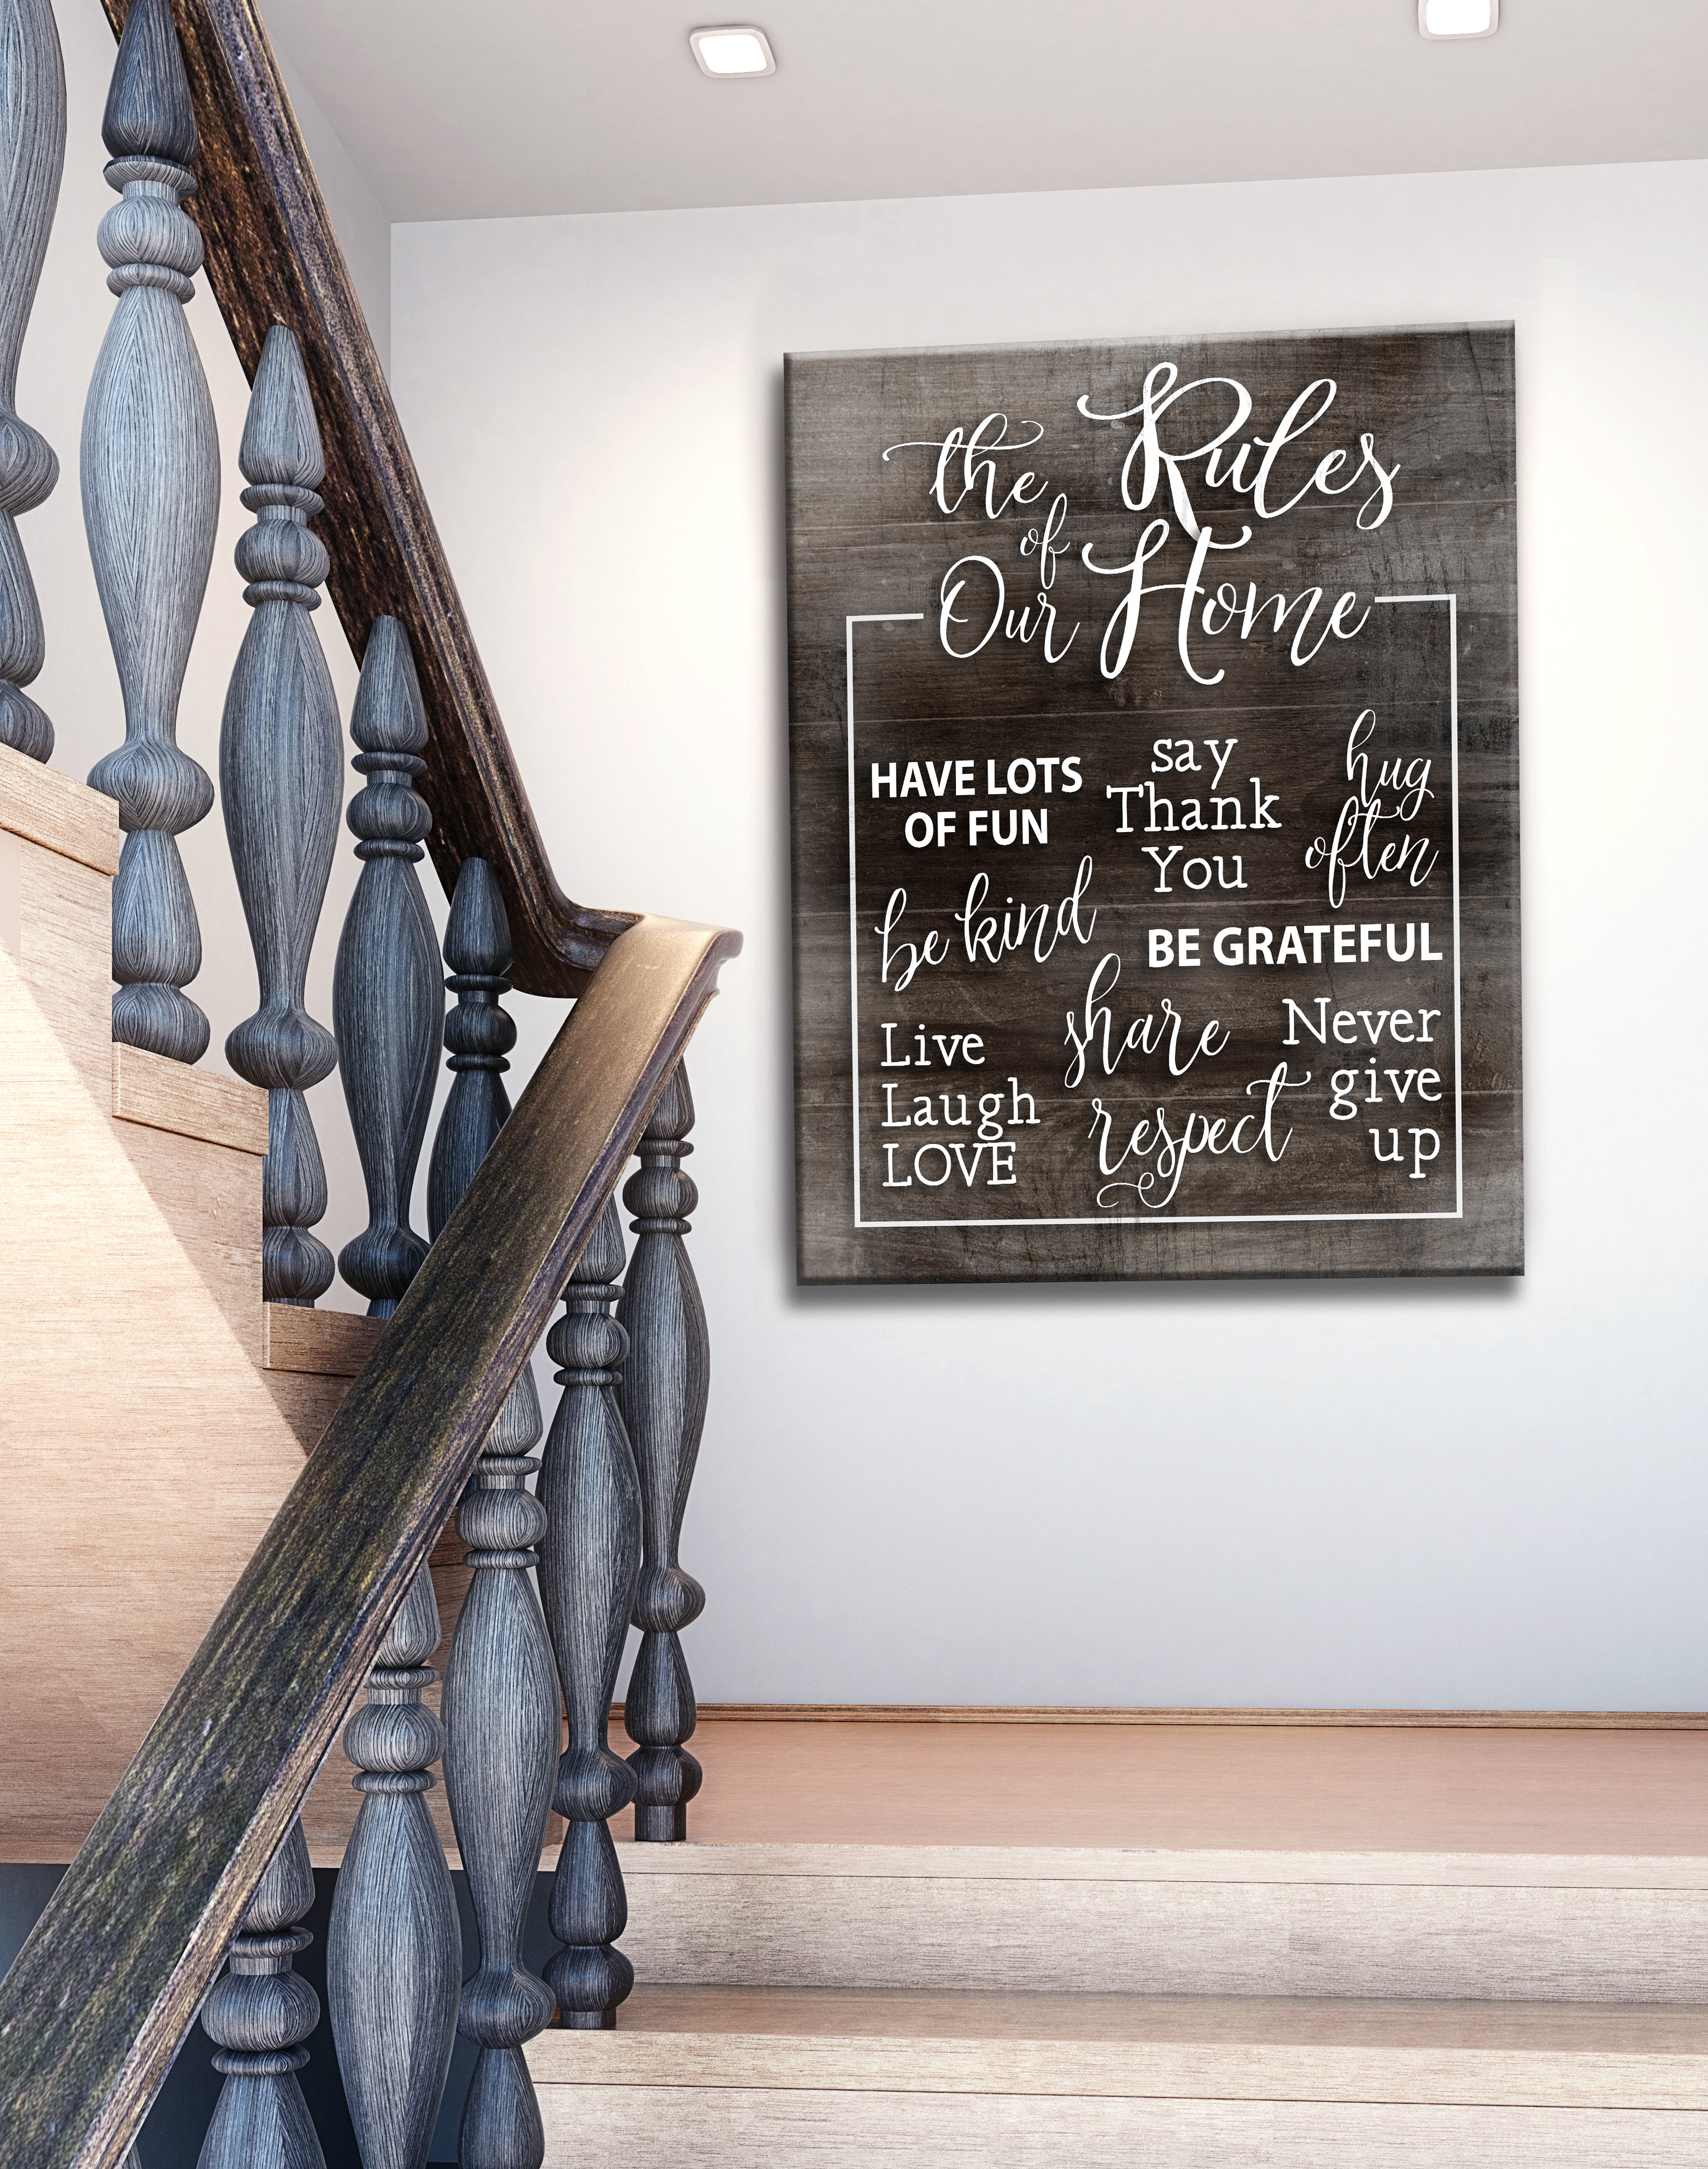 the Rules
of
Our Home
HAVE LOTS
OF FUN
say
Thank
You
hug
often
be kind
BE GRATEFUL
Live
Laugh
LOVE
share
respect
Never
give
up